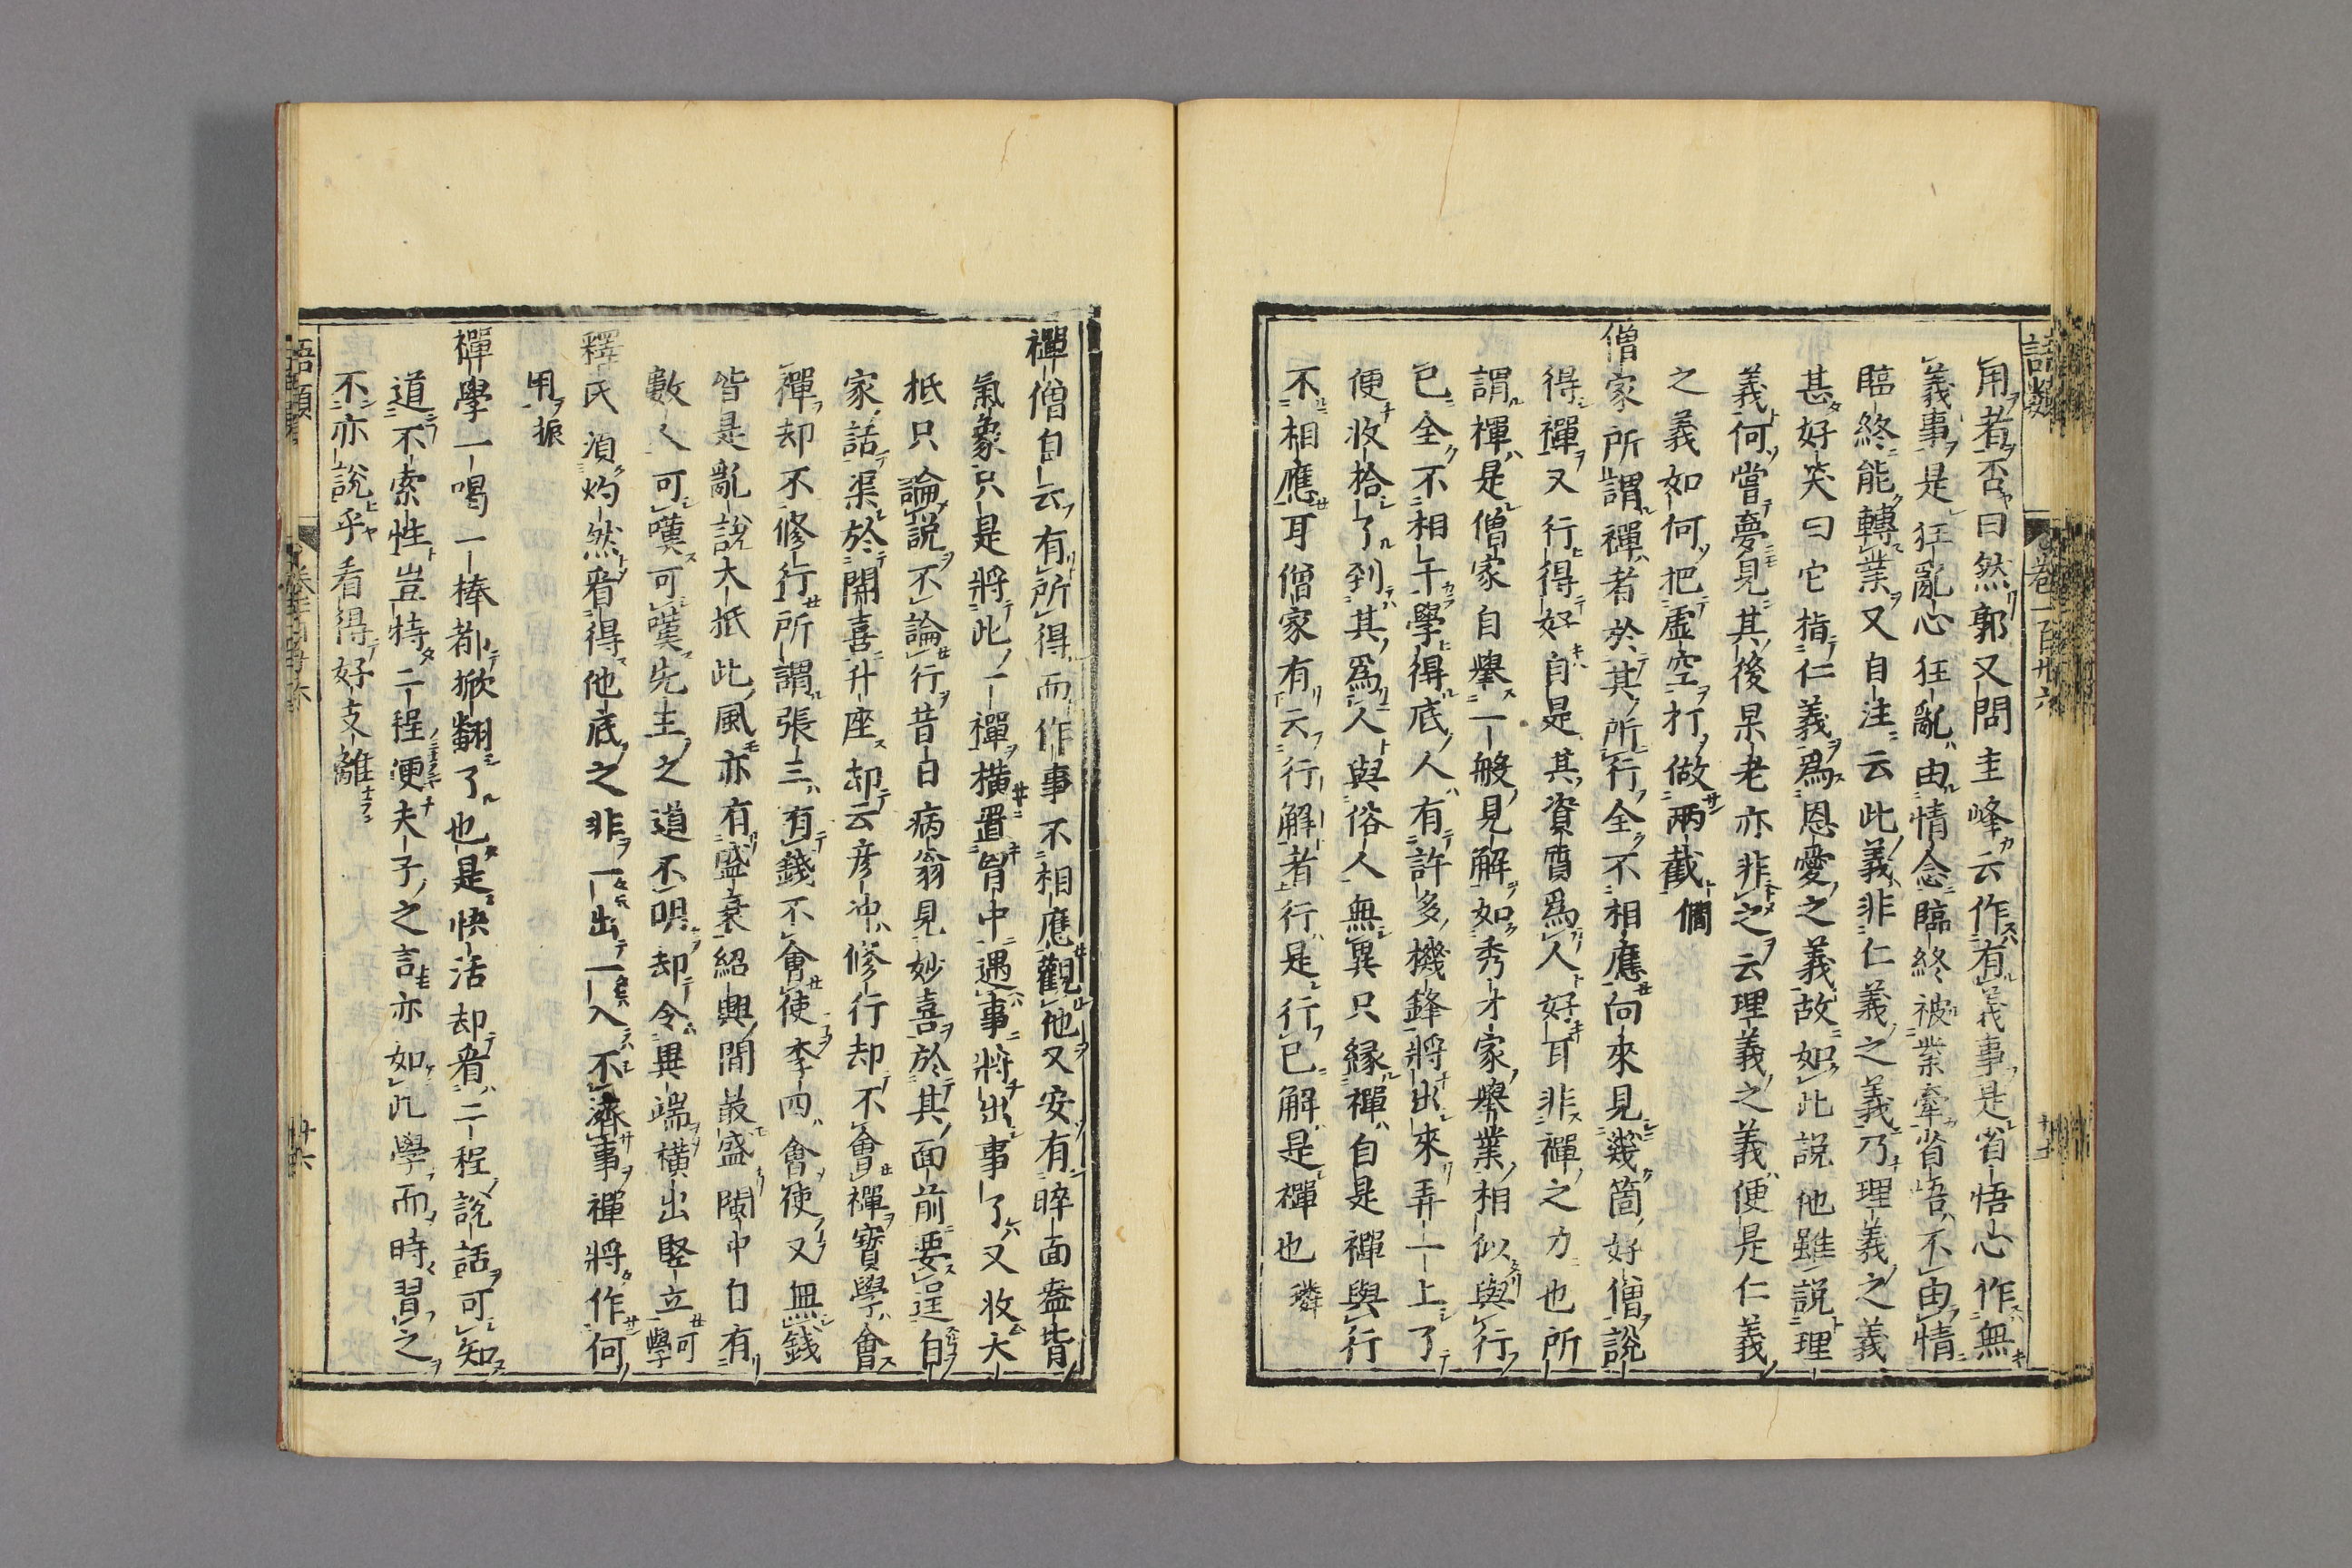 語類
卷一百廿六
用者否曰然郭又問圭峰云作有義事是省悟心作無
義事是狂亂心狂亂由情念臨終被業牽省悟不由情
臨終能轉業又自注云此義非仁義之義乃理義之義
甚好笑曰它指仁義爲恩愛之義故如此說他雖說理
義何嘗夢見其後杲老亦非之云理義之義便是仁義
之義如何把虛空打做兩截僩
僧家所謂禪者於其所行全不相應向來見幾箇好僧說
得禪又行得好自是其資質爲人好耳非禪之力也所
謂禪是僧家自舉一般見解如秀才家舉業相似與行
已全不相干學得底人有許多機鋒將出來弄一上了
便收拾了到其爲人與俗人無異只緣禪自是禪與行
不相應耳僧家有云行解者行是行已解是禪也璘
禪僧自云有所得而作事不相應觀他又安有睟面盎背
氣象只是將此一禪橫置胷中遇事將出事了又收大
抵只論說不論行昔日病翁見妙喜於其面前要逞自
家話渠於開喜升座却云彦冲修行却不會禪寶學會
禪却不修行所謂張三有錢不會使李四會使又無錢
皆是亂說大抵此風亦有盛衰紹興間最盛閩中自有
數人可嘆可嘆先王之道不明却令異端橫出竪立可學
釋氏須灼然看得他底之非一出一入不濟事禪將作何
用振
禪學一喝一棒都掀翻了也是快活却看二程說話可知
道不索性豈特二程便夫子之言亦如此學而時習之
不亦說乎看得好支離
語類